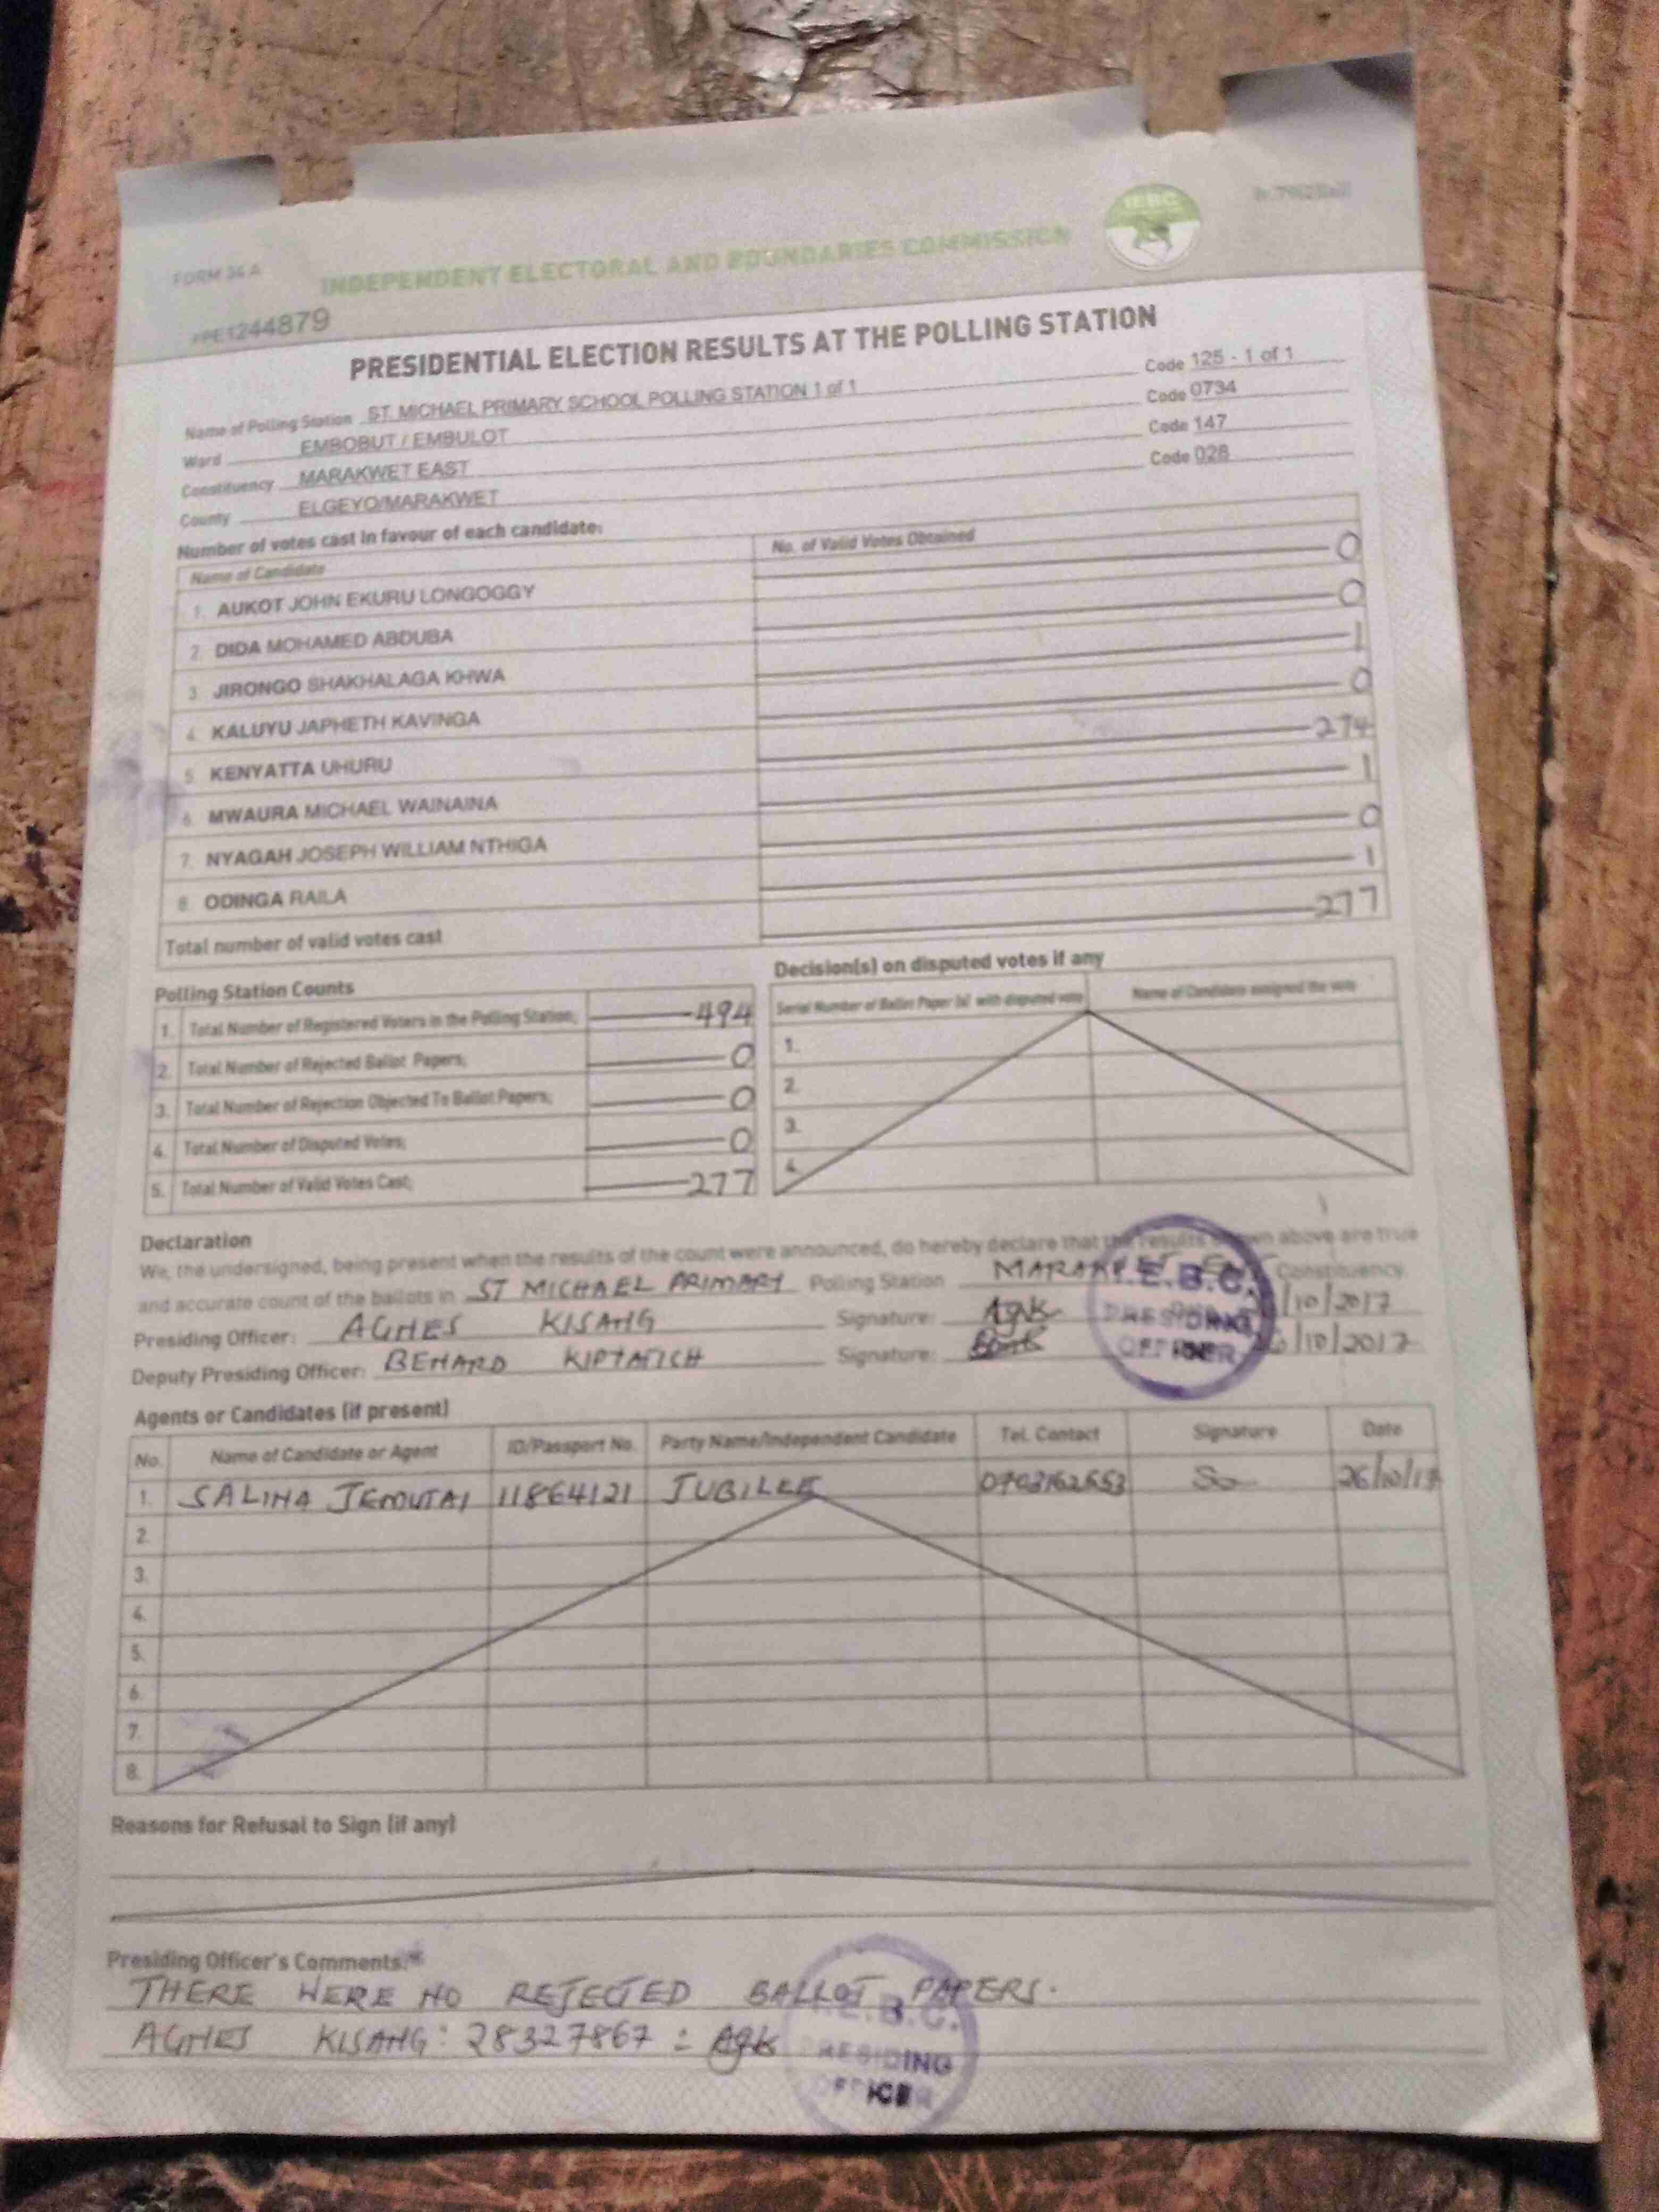 FORM 34 A
INDEPENDENT ELECTORAL AND BOUNDARIES COMMISSION
IEBC
1244879
PRESIDENTIAL ELECTION RESULTS AT THE POLLING STATION
Name of Polling Station ST. MICHAEL PRIMARY SCHOOL POLLING STATION 1 of 1 Code 125 - 1 of 1
Ward EMBOBUT / EMBULOT Code 0734
Constituency MARAKWET EAST Code 147
County ELGEYO/MARAKWET Code 028
Number of votes cast in favour of each candidate:
Name of Candidate No. of Valid Votes Obtained
1. AUKOT JOHN EKURU LONGOGGY 0
2. DIDA MOHAMED ABDUBA 0
3. JIRONGO SHAKHALAGA KHWA 1
4. KALUYU JAPHETH KAVINGA 0
5. KENYATTA UHURU 274
6. MWAURA MICHAEL WAINAINA 1
7. NYAGAH JOSEPH WILLIAM NTHIGA 0
8. ODINGA RAILA 1
Total number of valid votes cast 277
Polling Station Counts
1. Total Number of Registered Voters in the Polling Station; 494
2. Total Number of Rejected Ballot Papers; 0
3. Total Number of Rejection Objected To Ballot Papers; 0
4. Total Number of Disputed Votes; 0
5. Total Number of Valid Votes Cast; 277
Decision(s) on disputed votes if any
Serial Number of Ballot Paper (s) with disputed vote Name of Candidate assigned the vote
1.
2.
3.
4.
Declaration
We, the undersigned, being present when the results of the count were announced, do hereby declare that the results shown above are true
and accurate count of the ballots in ST MICHAEL PRIMARY Polling Station MARAKWET EAST Constituency.
Presiding Officer: AGNES KISANG Signature: Agk 26/10/2017
Deputy Presiding Officer: BENARD KIPTATICH Signature: 26/10/2017
I.E.B.C.
PRESIDING
OFFICER
Agents or Candidates (if present)
No. Name of Candidate or Agent ID/Passport No. Party Name/Independent Candidate Tel. Contact Signature Date
1. SALINA JEMUTAI 11864121 JUBILEE 0703162553 26/10/17
2.
3.
4.
5.
6.
7.
8.
Reasons for Refusal to Sign (if any)
Presiding Officer's Comments:
THERE WERE NO REJECTED BALLOT PAPERS.
AGNES KISANG: 28327867 : Agk
I.E.B.C.
PRESIDING
OFFICER